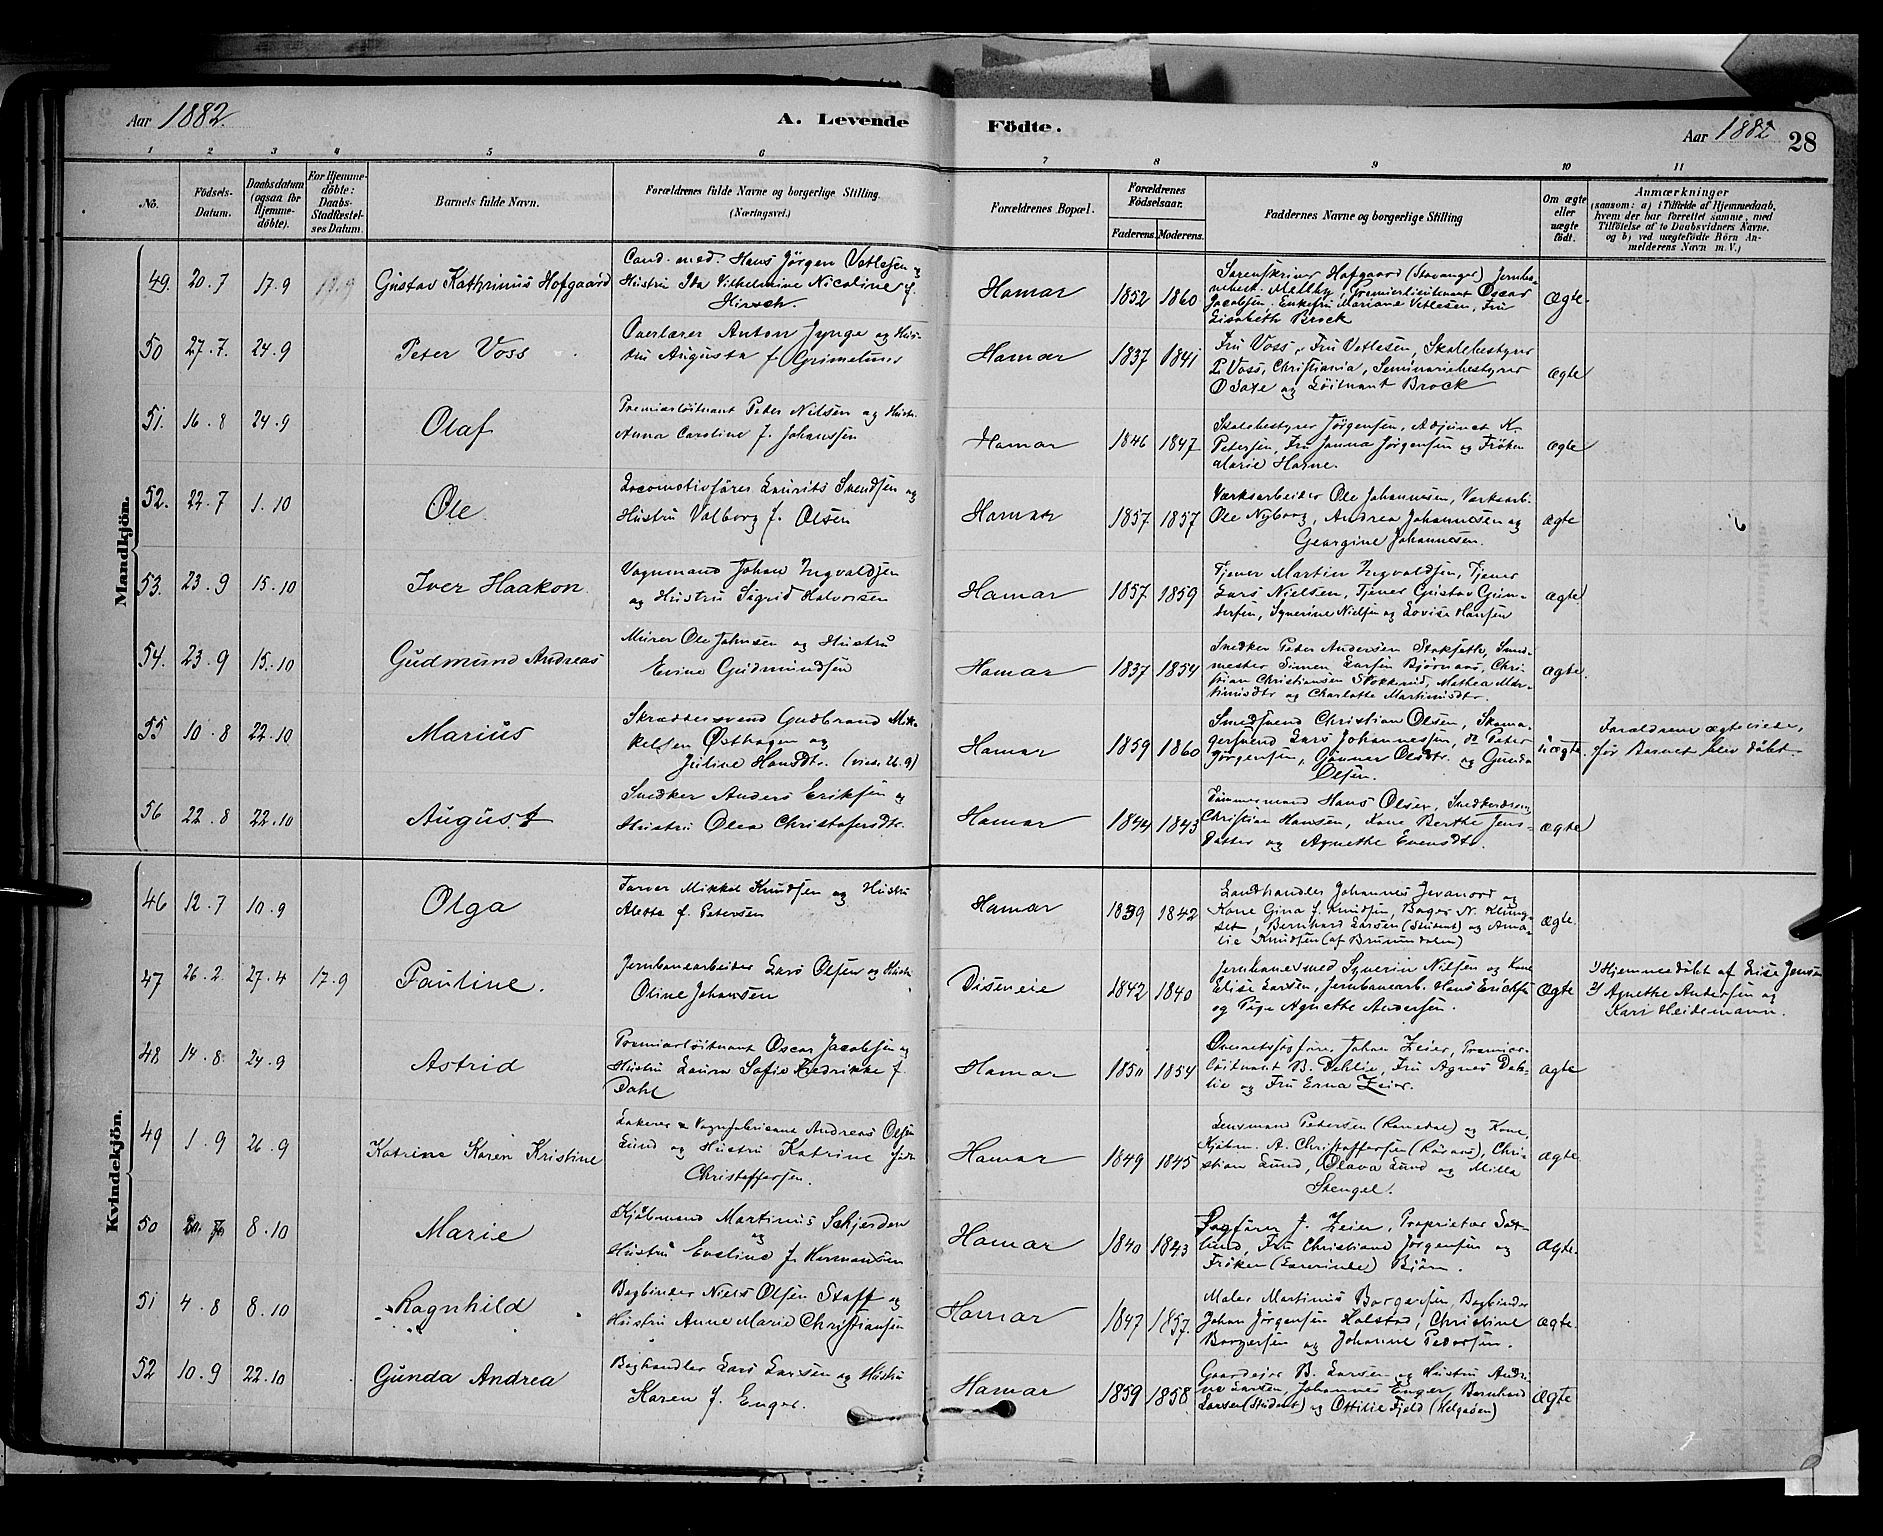 Aar 1882. A. Levende Födte. Aar 1882 28
1 2 3 4 5 6 7 8 9 10 11
No. Födsels-Datum. Daabsdatum (ogsaa for Hjemmedöbte). For Hjemmedöbte: Daabs-Stadfæstelses Datum. Barnets fulde Navn. Forældrenes fulde Navne og borgerlige Stilling. (Næringsvei.) Forældrenes Bopæl. Forældrenes Födselsaar. Faderens. Moderens. Faddernes Navne og borgerlige Stilling Om ægte eller uægte födt. Anmærkninger
(saasom: a) i Tilfælde af Hjemmedaab, hvem der har forrettet samme, med Tilföielse af to Daabsvidners Navne. og b) ved uægtefödte Börn Anmelderens Navn m. V.)
Mandkjön.
49. 20.7 17.9 17.9 Gustav Kathrinus Hofgaard
Cand. med. Hans Jörgen Vetlesen og
Hustru Ida Vilhelmine Nicoline f.
Hirsch.
Hamar 1852 1860
Sorenskriver Hofgaard (Stavanger) Jernba-
Mellby, Premierlieutenant Oscar
Jacobsen, Enkefru Mariane Vetlesen, Fru
Elisabeth Brock
Ægte
50 27.7. 24.9 Peter Voss
Overlærer Anton Jynge og Hus-
tru Augusta f. Grimelund
Hamar 1837 1841
Fru Voss, Fru Vetlesen, Skolebestyrer
P. Voss, Christiania, Seminariebestyrer
O Saxe og Löitnant Brock
ægte
51. 16.8 24.9 Olaf
Premierlöitnant Peder Nilsen og Hustr.
Anna Caroline f. Johansen
Hamar 1846 1847
Skolebestyrer Jörgensen, Adjunct K.
Petersen, Fru Janna Jörgensen og Fröken
Marie Hagne.
ægte
52. 22.7 1.10 Ole
Locomotivförer Laurits Svendsen og
Hustru Valborg f. Olsen
Hamar 1857 1857
Værksarbeider Ole Johannesen, Værksarb.
Ole Nyborg, Andrea Johannesen og
Georgine Johannesen.
ægte
53. 23.9 15.10 Iver Haakon
Vognmand Johan Ingvaldsen
og Hustru Sigrid Halvorsen
Hamar 1857 1859
Tjener Martin Ingvaldsen, Tjener
Lars Nielsen, Tjener Gustav Gun-
dersen, Synerine Nielsen og Lovise Hansen
ægte
54. 23.9 15.10 Gudmund Andreas
Murer Ole Johnsen og Hustru
Evine Gudmundsen
Hamar 1837 1854
Snedker Peder Andersen Stokseth, Smed-
mester Simen Larsen Bjørnaas, Chri-
stian Christiansen Stokkerud, Mathea Mar-
tinisdtr og Charlotte Martinisdtr.
ægte.
55 10.8 22.10 Marius
Skræddersvend Gudbrand Mik-
kelsen Østhagen og
Juline Hansdtr. (viede 26.9)
Hamar 1859 1860
Smedsvend Christian Olsen, Skoma-
gersvend Lars Johannessen, do Peter
Jörgensen, Gunner Olsdtr. og Gunda
Olsen.
uægte.
Forældrene ægteviede,
før Barnet blev døbt
56 22.8 22.10 August
Snedker Anders Eriksen og
Hustru Olea Christofersdtr.
Hamar 1844 1843
Tømmermand Hans Olsen, Snedkerdreng
Christian Hansen, Kone Berthe Jens-
datter og Agnethe Evensdtr.
ægte
Kvindekjön.
46 12.7 10.9 Olga
Farver Mikkel Knudsen og Hustru
Alette f. Petersen
Hamar 1839 1842
Landhandler Johannes Jevanord og
Kone Gina f. Knudsen, Bager N. Klung-
set, Bernhard Larsen (Student) og Ama-
lie Knudsen (af Brummundalen)
ægte.
47 26.2. 27.4 17.9 Pauline.
Jernbanearbeider Lars Olsen og Hustr
Oline Johansen
Diseneie 1842 1840
Jernbanesmed Synerin Nilsen og Kone
Elise Larsen, Jernbanearb. Hans Ericksen
og Pige Agnethe Andersen.
Ægte
1) Hjemmedøbt af Lise Jensen
2) Agnethe Andersen og
Kari Heidemann.
48 14.8. 24.9 Astrid
Premierlöitnant Oscar Jacobsen og
Hustru Laura Sofie Fredrikke f.
Dahl
Hamar 1850 1854
Overretssagfører Johan Zeier, Premier-
löitnant B. Dehlie, Fru Agnes Deh-
lie og Fru Erna Zeier.
ægte
49 1.9 26.9 Katrine Karen Kristine
Lakerer & Vognfabricant Andreas Olsen
Lund og Hustru Katrine
Christoffersen.
Hamar 1849 1845
Lensmand Petersen (Romedal) og Kone,
Kjøbm. A. Christoffersen (Röraas), Chri-
stian Lund, Olava Lund og Milla
Stengel.
ægte.
50 8.10 Marie
Kjøbmand Martinus Schjerden
og
Hustru Eveline f. Hermansen
Hamar 1840 1843
Sagfører J. Zeier, Proprietær Sæt-
lund, Fru Christiane Jörgensen og
Fröken (Lærerinde) Bjørn.
Ægte.
51 4.8 8.10 Ragnhild
Bogbinder Niels Olsen Staff og
Hustru Anne Marie Christiansen
Hamar 1847 1857.
Maler Martinus Borgersen, Bogbinder
Johan Jörgensen Holstad, Christine
Borgersen og Johanne Pedersen.
Ægte
52 10.9 22.10 Gunda Andrea
Boghandler Lars Larsen og Hustru
Karen f. Enger.
Hamar 1859 1858
Gaardejer B. Larsen og Hustru Andri-
ne Larsen, Johannes Enger, Bernhard
Larsen (Student) og Ottilie Fjeld (Helgøen)
Ægte